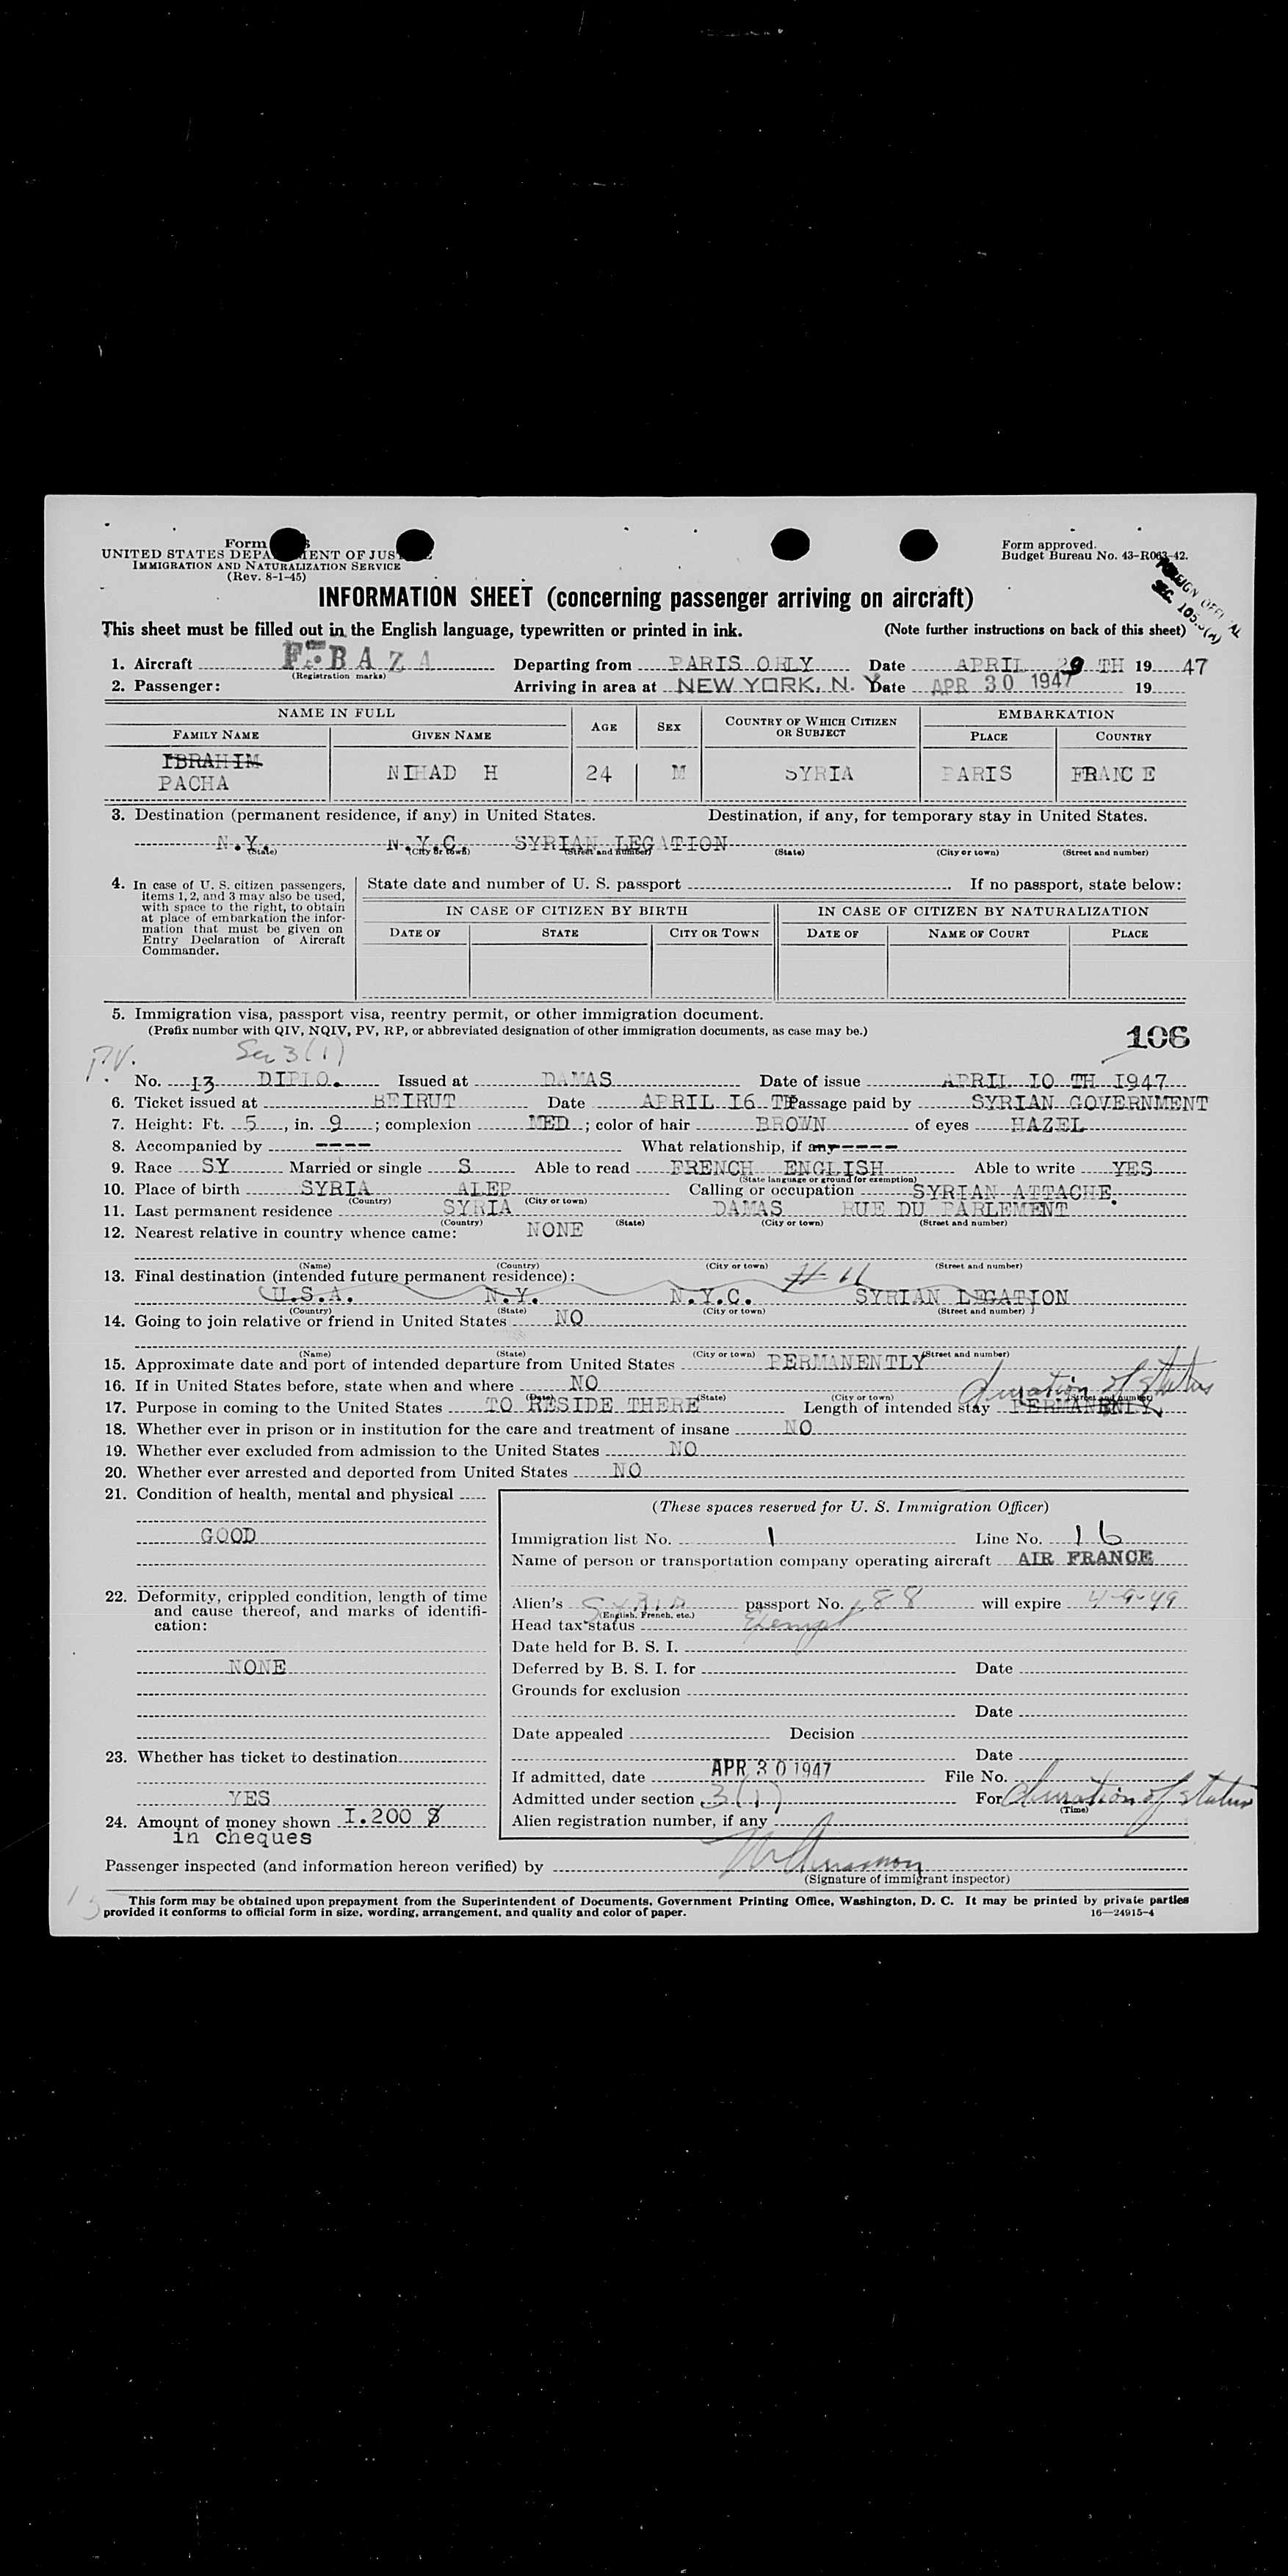 Form
UNITED STATES DEPARTMENT OF JUSTICE
IMMIGRATION AND NATURALIZATION SERVICE
(Rev. 8-1-45)
Form approved.
Budget Bureau No. 43-R063-42.
FOREIGN OFFICIAL
SEC. 105.3(A)
INFORMATION SHEET (concerning passenger arriving on aircraft)
This sheet must be filled out in the English language, typewritten or printed in ink. (Note further instructions on back of this sheet)
1. Aircraft F-BAZA Departing from PARIS ORLY Date APRIL 29 TH 19 47
(Registration marks)
2. Passenger: Arriving in area at NEW YORK, N. Y. Date APR 30 1947 19
NAME IN FULL AGE SEX COUNTRY OF WHICH CITIZEN OR SUBJECT EMBARKATION
FAMILY NAME GIVEN NAME PLACE COUNTRY
IBRAHIM
PACHA NIHAD H 24 M SYRIA PARIS FRANCE
3. Destination (permanent residence, if any) in United States. Destination, if any, for temporary stay in United States.
N.Y. N.Y.C. SYRIAN LEGATION
(State) (City or town) (Street and number) (State) (City or town) (Street and number)
4. In case of U. S. citizen passengers, items 1, 2, and 3 may also be used, with space to the right, to obtain at place of embarkation the information that must be given on Entry Declaration of Aircraft Commander.
State date and number of U. S. passport If no passport, state below:
IN CASE OF CITIZEN BY BIRTH IN CASE OF CITIZEN BY NATURALIZATION
DATE OF STATE CITY OR TOWN DATE OF NAME OF COURT PLACE
5. Immigration visa, passport visa, reentry permit, or other immigration document.
(Prefix number with QIV, NQIV, PV, RP, or abbreviated designation of other immigration documents, as case may be.)
106
P.V. Sec 3(1)
No. 13 DIPLO. Issued at DAMAS Date of issue APRIL 10 TH 1947
6. Ticket issued at BEIRUT Date APRIL 16 TH Passage paid by SYRIAN GOVERNMENT
7. Height: Ft. 5, in. 9; complexion MED; color of hair BROWN of eyes HAZEL
8. Accompanied by ---- What relationship, if any-----
9. Race SY Married or single S Able to read FRENCH ENGLISH Able to write YES
(State language or ground for exemption)
10. Place of birth SYRIA ALEP Calling or occupation SYRIAN ATTACHE.
(Country) (City or town)
11. Last permanent residence SYRIA DAMAS RUE DU PARLEMENT
(Country) (State) (City or town) (Street and number)
12. Nearest relative in country whence came: NONE
(Name) (Country) (City or town) (Street and number)
13. Final destination (intended future permanent residence):
U.S.A. N.Y. N.Y.C. SYRIAN LEGATION
(Country) (State) (City or town) (Street and number)
14. Going to join relative or friend in United States NO
(Name) (State) (City or town) (Street and number)
15. Approximate date and port of intended departure from United States PERMANENTLY
16. If in United States before, state when and where NO
(Date) (State) (City or town) (Street and number)
duration of status
17. Purpose in coming to the United States TO RESIDE THERE Length of intended stay PERMANENLY
18. Whether ever in prison or in institution for the care and treatment of insane NO
19. Whether ever excluded from admission to the United States NO
20. Whether ever arrested and deported from United States NO
21. Condition of health, mental and physical
GOOD
22. Deformity, crippled condition, length of time and cause thereof, and marks of identification:
NONE
23. Whether has ticket to destination
YES
24. Amount of money shown 1.200 $
in cheques
(These spaces reserved for U. S. Immigration Officer)
Immigration list No. 1 Line No. 16
Name of person or transportation company operating aircraft AIR FRANCE
Alien's Syria passport No. 88 will expire 4-9-49
(English, French, etc.)
Head tax status Exempt
Date held for B. S. I.
Deferred by B. S. I. for Date
Grounds for exclusion
Date
Date appealed Decision
Date
If admitted, date APR 30 1947 File No.
Admitted under section 3(1) For duration of status
(Time)
Alien registration number, if any
Passenger inspected (and information hereon verified) by
(Signature of immigrant inspector)
This form may be obtained upon prepayment from the Superintendent of Documents, Government Printing Office, Washington, D. C. It may be printed by private parties
provided it conforms to official form in size, wording, arrangement, and quality and color of paper. 16—24915-4